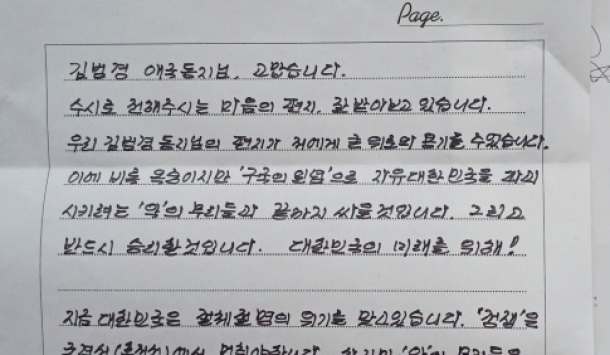 Page.
김범경 애국동지님, 고맙습니다.
수시로 전해주시는 마음의 편지, 잘 받아보고 있습니다.
우리 김범경 동지님의 편지가 저에게 큰 위로와 용기를 주었습니다.
이에 비록 옥중이지만 '구국의 일념'으로 자유대한민국을 파괴
시키려는 '악'의 무리들과 끝까지 싸울것입니다. 그리고
반드시 승리할것입니다. 대한민국의 미래를 위해!
지금 대한민국은 절체절명의 위기를 맞고있습니다. '검찰'은